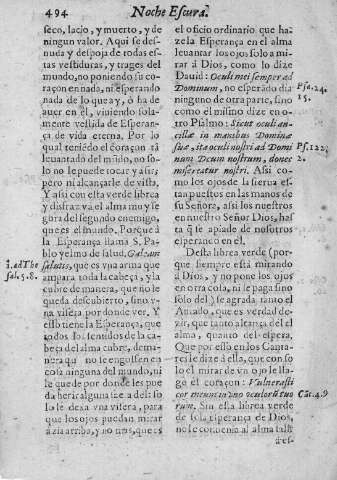 494 Noche Escura.
seco, lacio, y muerto, y de
ningun valor. Aqui se des-
nuda y despoja de todas es-
tas vestiduras, y trages del
mundo, no poniendo su co-
raçon en nada, ni esperando
nada de lo que ay, ó ha de
auer en él, viuiendo sola-
mente vestida de Esperan-
ça de vida eterna. Por lo
qual teniédo el coraçon tã
leuantado del múdo, no so-
lo no le puede tocar y asir;
pero ni alcançarle de vista.
Y assi con esta verde librea
y disfraz va el alma muy se-
gura del segundo enemigo,
que es el mundo. Porque à
la Esperança llama S. Pa-
blo yelmo de salud. Galeam
salutis, que es vna arma que
ampara toda la cabeça, y la
cubre de manera, que no le
queda descubierto, sino v-
na visera por donde ver. Y
esso tiene la Esperança, que
todos los sentidos de la ca-
beça del alma cubre, de ma-
nera que no se engolfen en
cosa ninguna del mundo, ni
le quede por donde les pue-
da herir alguna
lo le dexa vna visera, para
que los ojos puedan mirar
á zia arriba, y no mas, que es
1. ad The
sal. 5. 8.
el oficio ordinario que ha-
ze la Esperança en el alma
leuantar los ojos solo a mi-
rar á Dios, como lo dize
Dauid: Oculi mei semper ad
Dominum, no esperado dia
ninguno de otra parte, sino
como él mismo dize en o-
tro Psalmo: Sicut oculi an-
cillæ in manibus Dominæ
suæ, ita oculi nostri ad Domi
num Deum nostrum, donec
misereatur nostri. Assi co-
mo los ojos de la sierua es-
tan puestos en las manos de
su Señora, assi los nuestros
en nuestro Señor Dios, has-
ta q̃ se apiade de nosotros
esperando en el.
Desta librea verde (por-
que siempre está mirando
à Dios, y no pone los ojos
en otra cosa, ni se paga sino
solo del) se agrada tanto el
Amado, que es verdad de-
zir, que tanto alcança del el
alma, quanto del espera.
Que por esso en los Canta-
res le dize á ella, que con so-
lo el mirar de vn ojo le lla-
go el coraçon: Vulnerasti
cor meum in vno oculorũ tuo
rum. Sin esta librea verde
de sola esperança de Dios,
no le conuenia al alma salir
a es-
Psa. 24.
15.
Ps. 122.
2.
Cãt. 4. 9